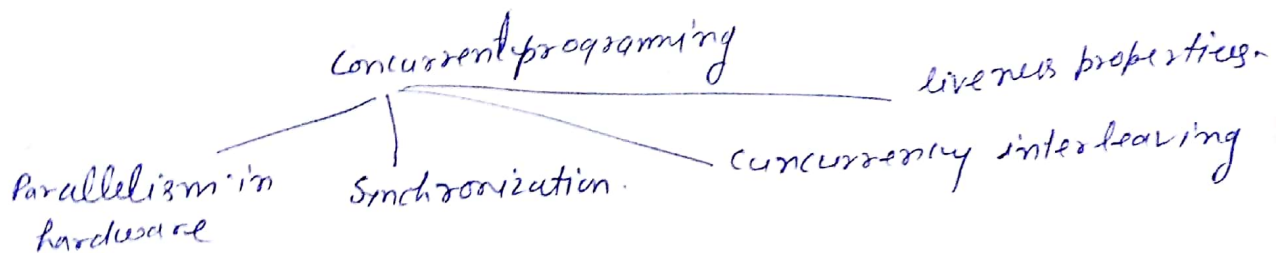 Concurrent programming
liveness properties.
Parallelism in
hardware
Synchronization.
Cuncurrency interleaving